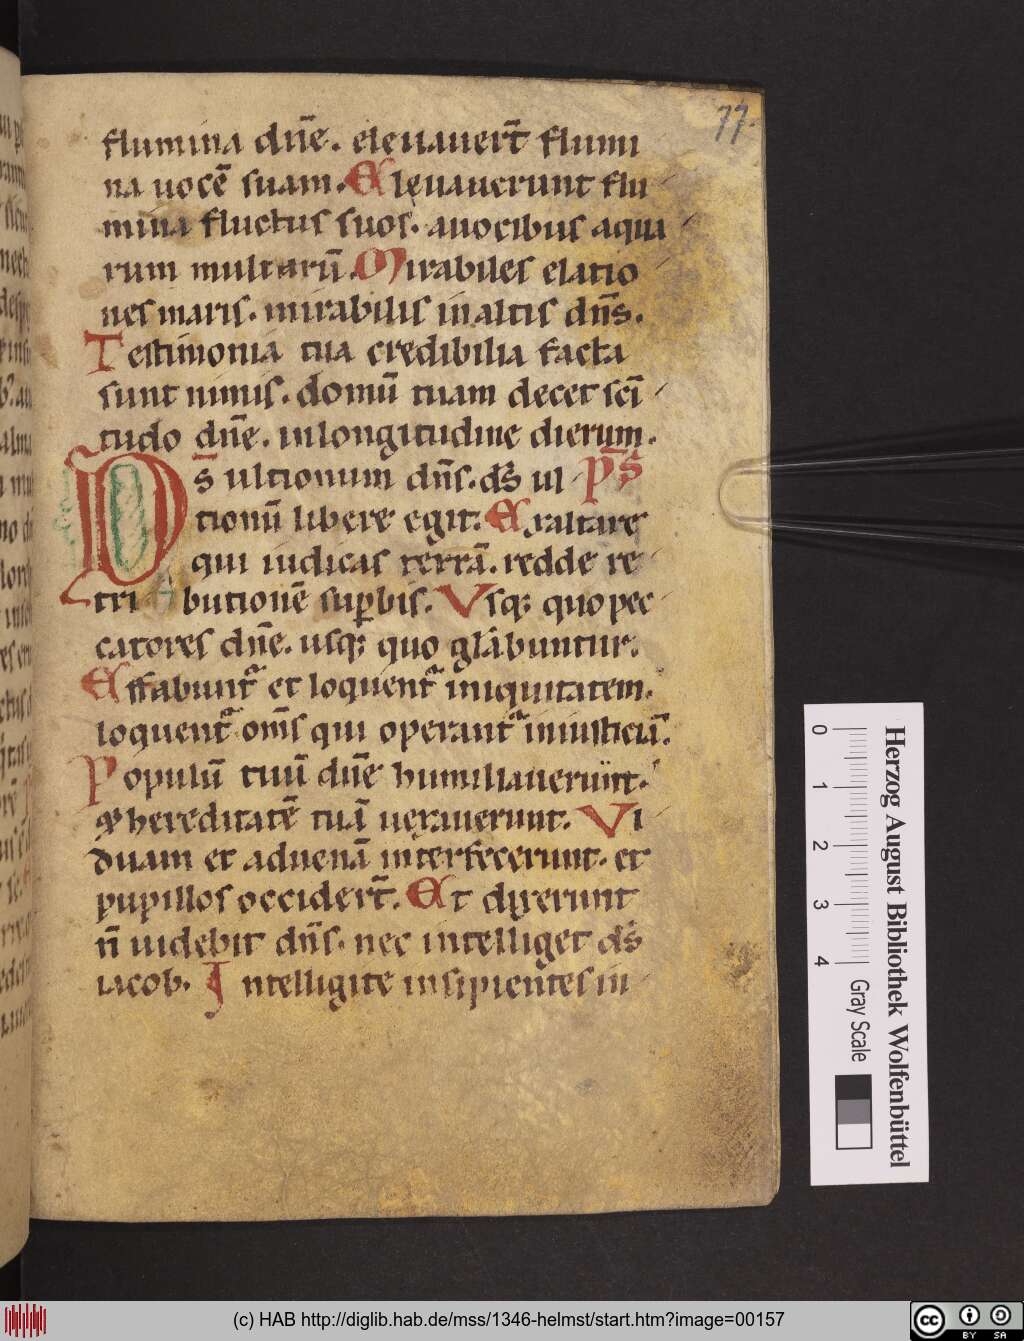 77.
flumina dn̄e. eleuauert̄ flumi
na uocē suam. Eleuauerunt flu
mina fluctus suos. auocibus aqua
rum multarū. Mirabiles elatio
nes maris. mirabilis in altis dn̄s.
Testimonia tua credibilia facta
sunt nimis. domū tuam decet scī
tudo dn̄e. inlongitudine dierum.
Ds̄ ultionum dn̄s. ds̄ ul p̄s̄
tionū libere egit. Exaltare
qui iudicas terrā. redde re
tributionē suꝑbis. Vsq; quo pec
catores dn̄e. usq; quo glābuntur.
Effabunt᷑ et loquent᷑ iniquitatem.
loquent᷑ om̄s qui operant᷑ iniusticiā.
Populū tuū dn̄e humiliauerunt.
& hereditatē tuā uexauerunt. Vi
duam et aduenā interfecerunt. et
pupillos occidert̄. Et dixerunt
n̄ uidebit dn̄s. nec intelliget ds̄
iacob. Intelligite insipientes in
Herzog August Bibliothek Wolfenbüttel
0 1 2 3 4 Gray Scale
(c) HAB http://diglib.hab.de/mss/1346-helmst/start.htm?image=00157
cc BY SA